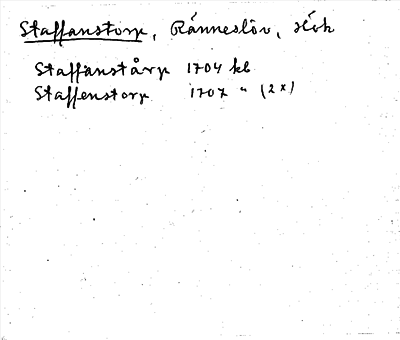 Staffanstorp, Ränneslöv, Hök
Staffanstårp 1704 kb
Staffenstorp 1707 " (2x)